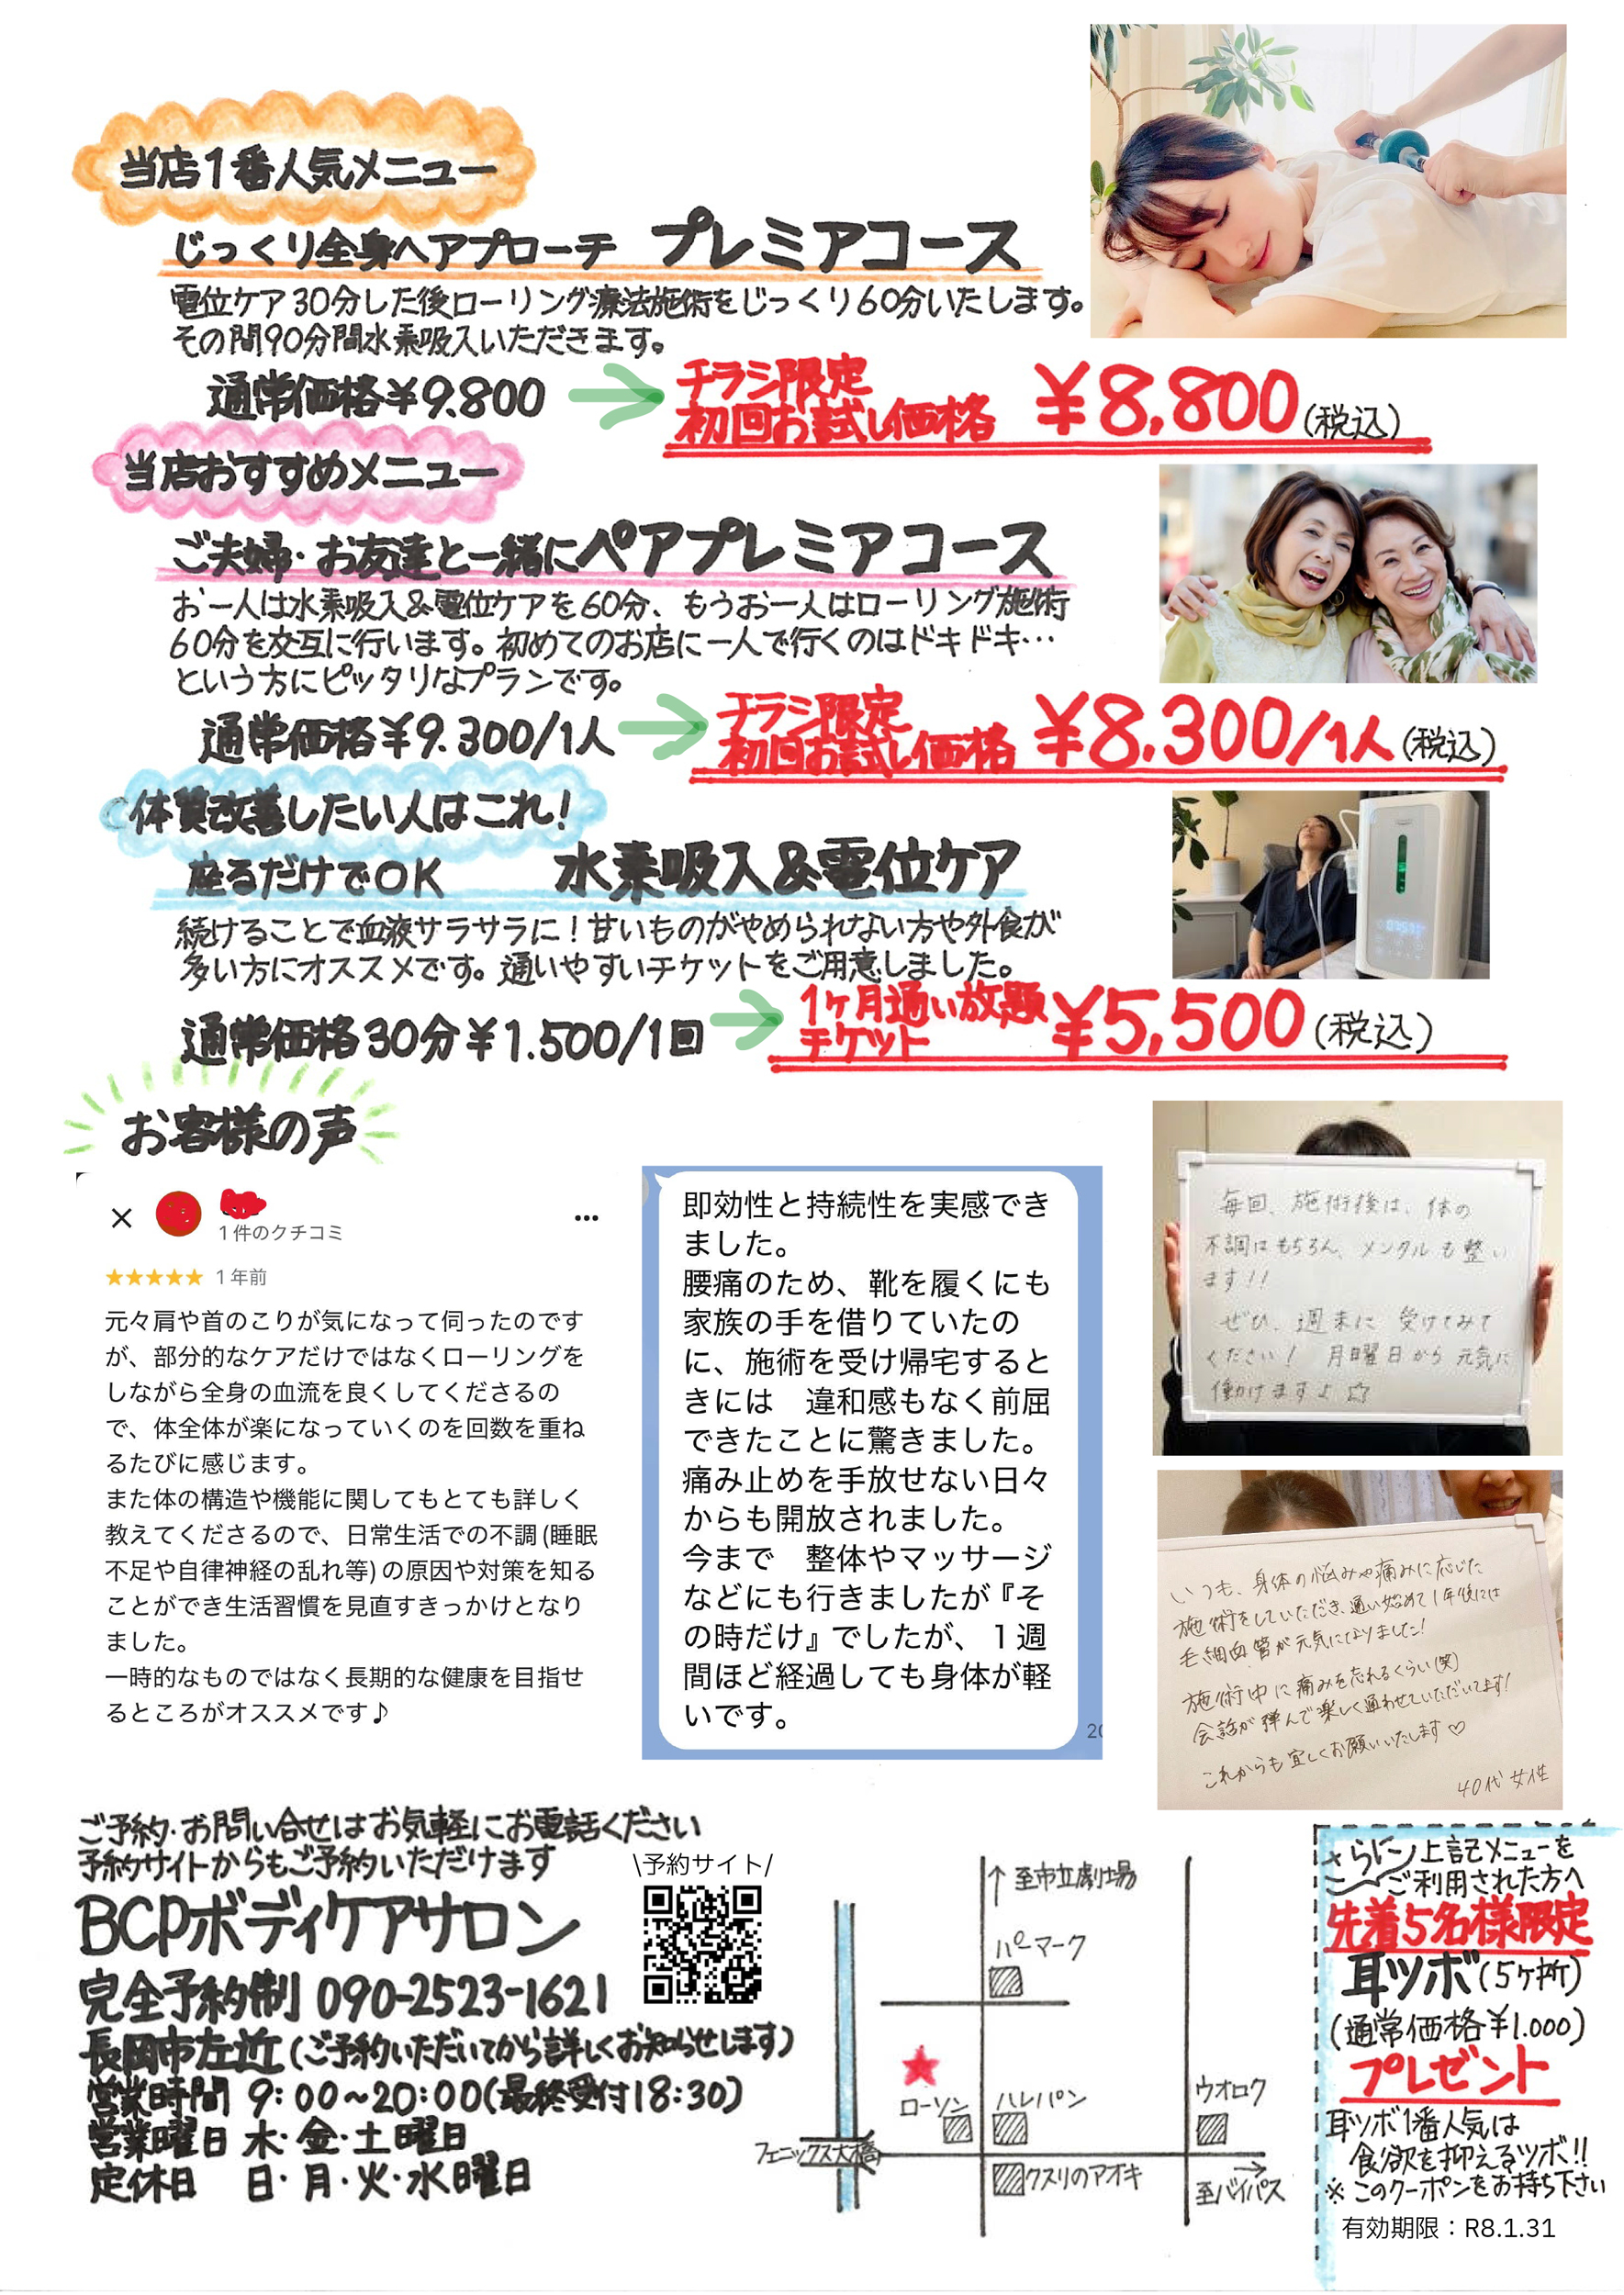 当店1番人気メニュー
じっくり全身へアプローチ プレミアコース
電位ケア30分した後ローリング療法施術をじっくり60分いたします。
その間90分間水素吸入いただきます。
通常価格¥9.800
チラシ限定
初回お試し価格 ¥8,800(税込)
当店おすすめメニュー
ご夫婦・お友達と一緒にペアプレミアコース
お一人は水素吸入&電位ケアを60分、もうお一人はローリング施術
60分を交互に行います。初めてのお店に一人で行くのはドキドキ…
という方にピッタリなプランです。
通常価格¥9.300/1人
チラシ限定
初回お試し価格 ¥8.300/1人(税込)
体質改善したい人はこれ!
座るだけでOK 水素吸入&電位ケア
続けることで血液サラサラに!甘いものがやめられない方や外食が
多い方にオススメです。通いやすいチケットをご用意しました。
通常価格30分¥1.500/1回
1ヶ月通い放題
チケット ¥5,500(税込)
お客様の声
1件のクチコミ
★★★★★ 1年前
元々肩や首のこりが気になって伺ったのです
が、部分的なケアだけではなくローリングを
しながら全身の血流を良くしてくださるの
で、体全体が楽になっていくのを回数を重ね
るたびに感じます。
また体の構造や機能に関してもとても詳しく
教えてくださるので、日常生活での不調(睡眠
不足や自律神経の乱れ等)の原因や対策を知る
ことができ生活習慣を見直すきっかけとなり
ました。
一時的なものではなく長期的な健康を目指せ
るところがオススメです♪
即効性と持続性を実感でき
ました。
腰痛のため、靴を履くにも
家族の手を借りていたの
に、施術を受け帰宅すると
きには 違和感もなく前屈
できたことに驚きました。
痛み止めを手放せない日々
からも開放されました。
今まで 整体やマッサージ
などにも行きましたが『そ
の時だけ』でしたが、1週
間ほど経過しても身体が軽
いです。
20
毎回、施術後は、体の
不調はもちろん、メンタルも整い
ます!!
ぜひ、週末に 受けてみて
ください! 月曜日から元気に
働けますよ☆
いつも、身体の悩みや痛みに応じた
施術をしていただき、通い始めて1年後には
毛細血管が元気になりました!
施術中に痛みを忘れるくらい(笑)
会話が弾んで楽しく通わせていただいてます!
これからも宜しくお願いいたします♡
40代 女性
ご予約・お問い合せはお気軽にお電話ください
予約サイトからもご予約いただけます
BCPボディケアサロン
完全予約制 090-2523-1621
長岡市左近(ご予約いただいてから詳しくお知らせします)
営業時間 9:00~20:00(最終受付18:30)
営業曜日 木・金・土曜日
定休日 日・月・火・水曜日
\予約サイト/
↑至市立劇場
パマーク
ローソン
ハレパン
ウオロク
フェニックス大橋
クスリのアオキ
至バイパス
さらに 上記メニューを
ご利用された方へ
先着5名様限定
耳ツボ(5ヶ所)
(通常価格¥1.000)
プレゼント
耳ツボ1番人気は
食欲を抑えるツボ!!
※このクーポンをお持ち下さい
有効期限:R8.1.31